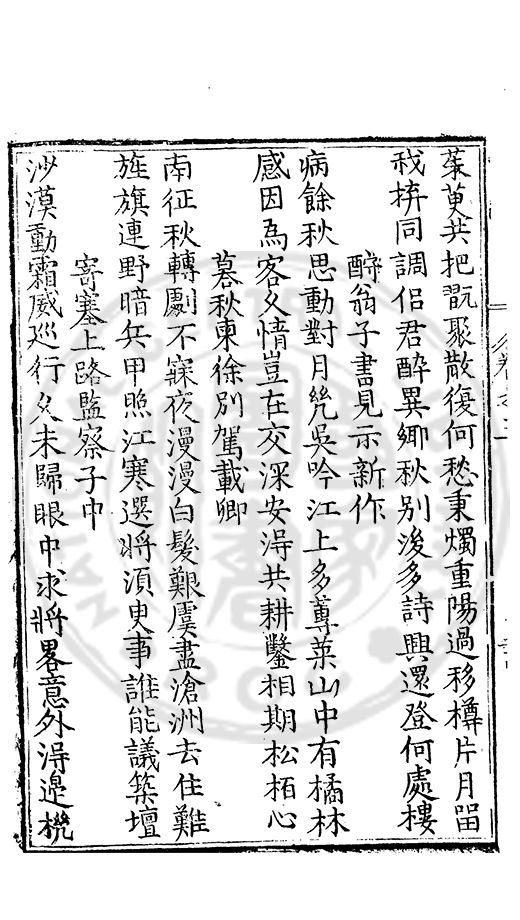 茱萸共把翫聚散復何愁秉燭重陽過移樽片月畱
我棹同調侶君醉異鄉秋別後多詩興還登何處樓
酧翁子書見示新作
病餘秋思動對月幾吳吟江上多蓴菜山中有橘林
感因爲客久情豈在交深安得共耕鑿相期松栢心
暮秋柬徐別駕載卿
南征秋轉劇不寐夜漫漫白髮艱虞盡滄洲去住難
旌旗連野暗兵甲照江寒選將須吏事誰能議築壇
寄塞上路監察子中
沙漠動霜威巡行久未歸眼中求將畧意外得邊機